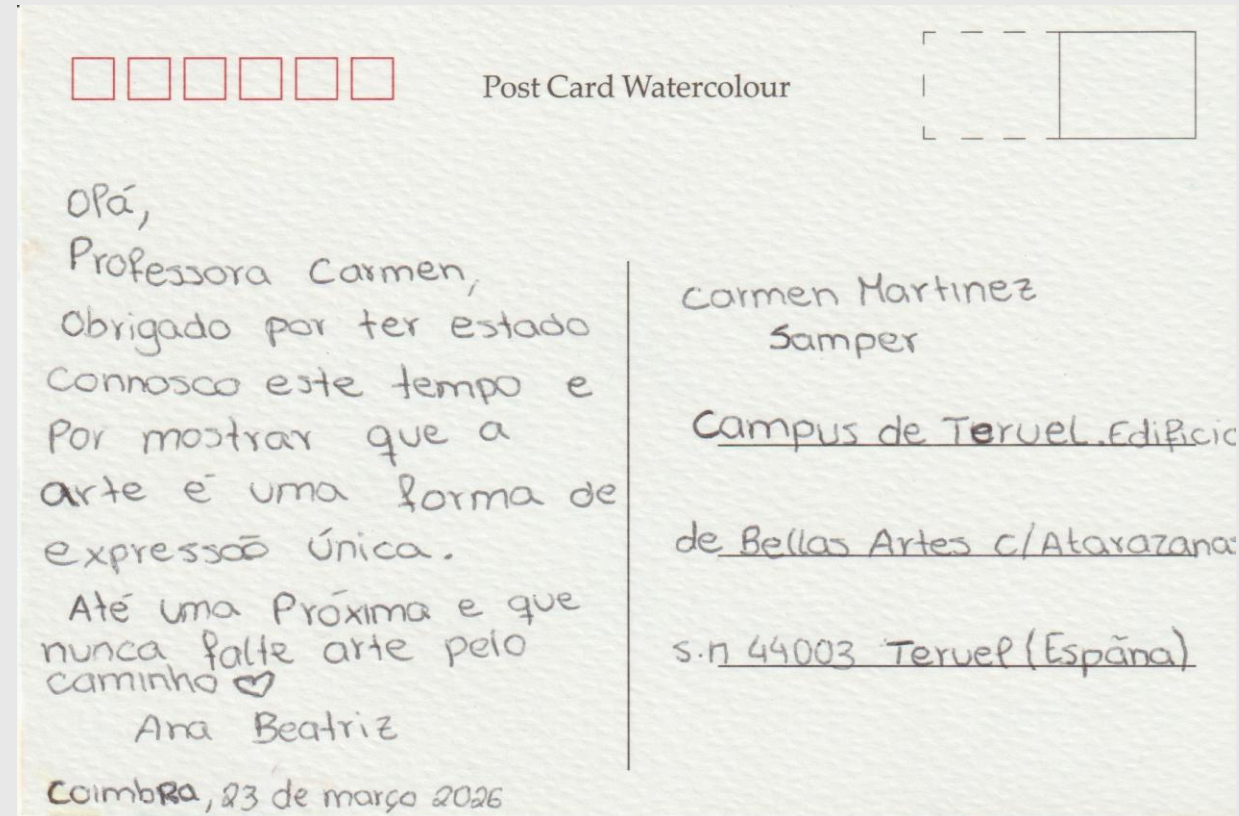 Post Card Watercolour
Olá,
Professora Carmen,
Obrigado por ter estado
connosco este tempo e
por mostrar que a
arte é uma forma de
expressão única.
Até uma Próxima e que
nunca falte arte pelo
caminho ♡
Ana Beatriz
Coimbra, 23 de março 2026
Carmen Martinez
Samper
Campus de Teruel. Edificio
de Bellas Artes c/Atarazana
s.n 44003 Teruel (Espãna)